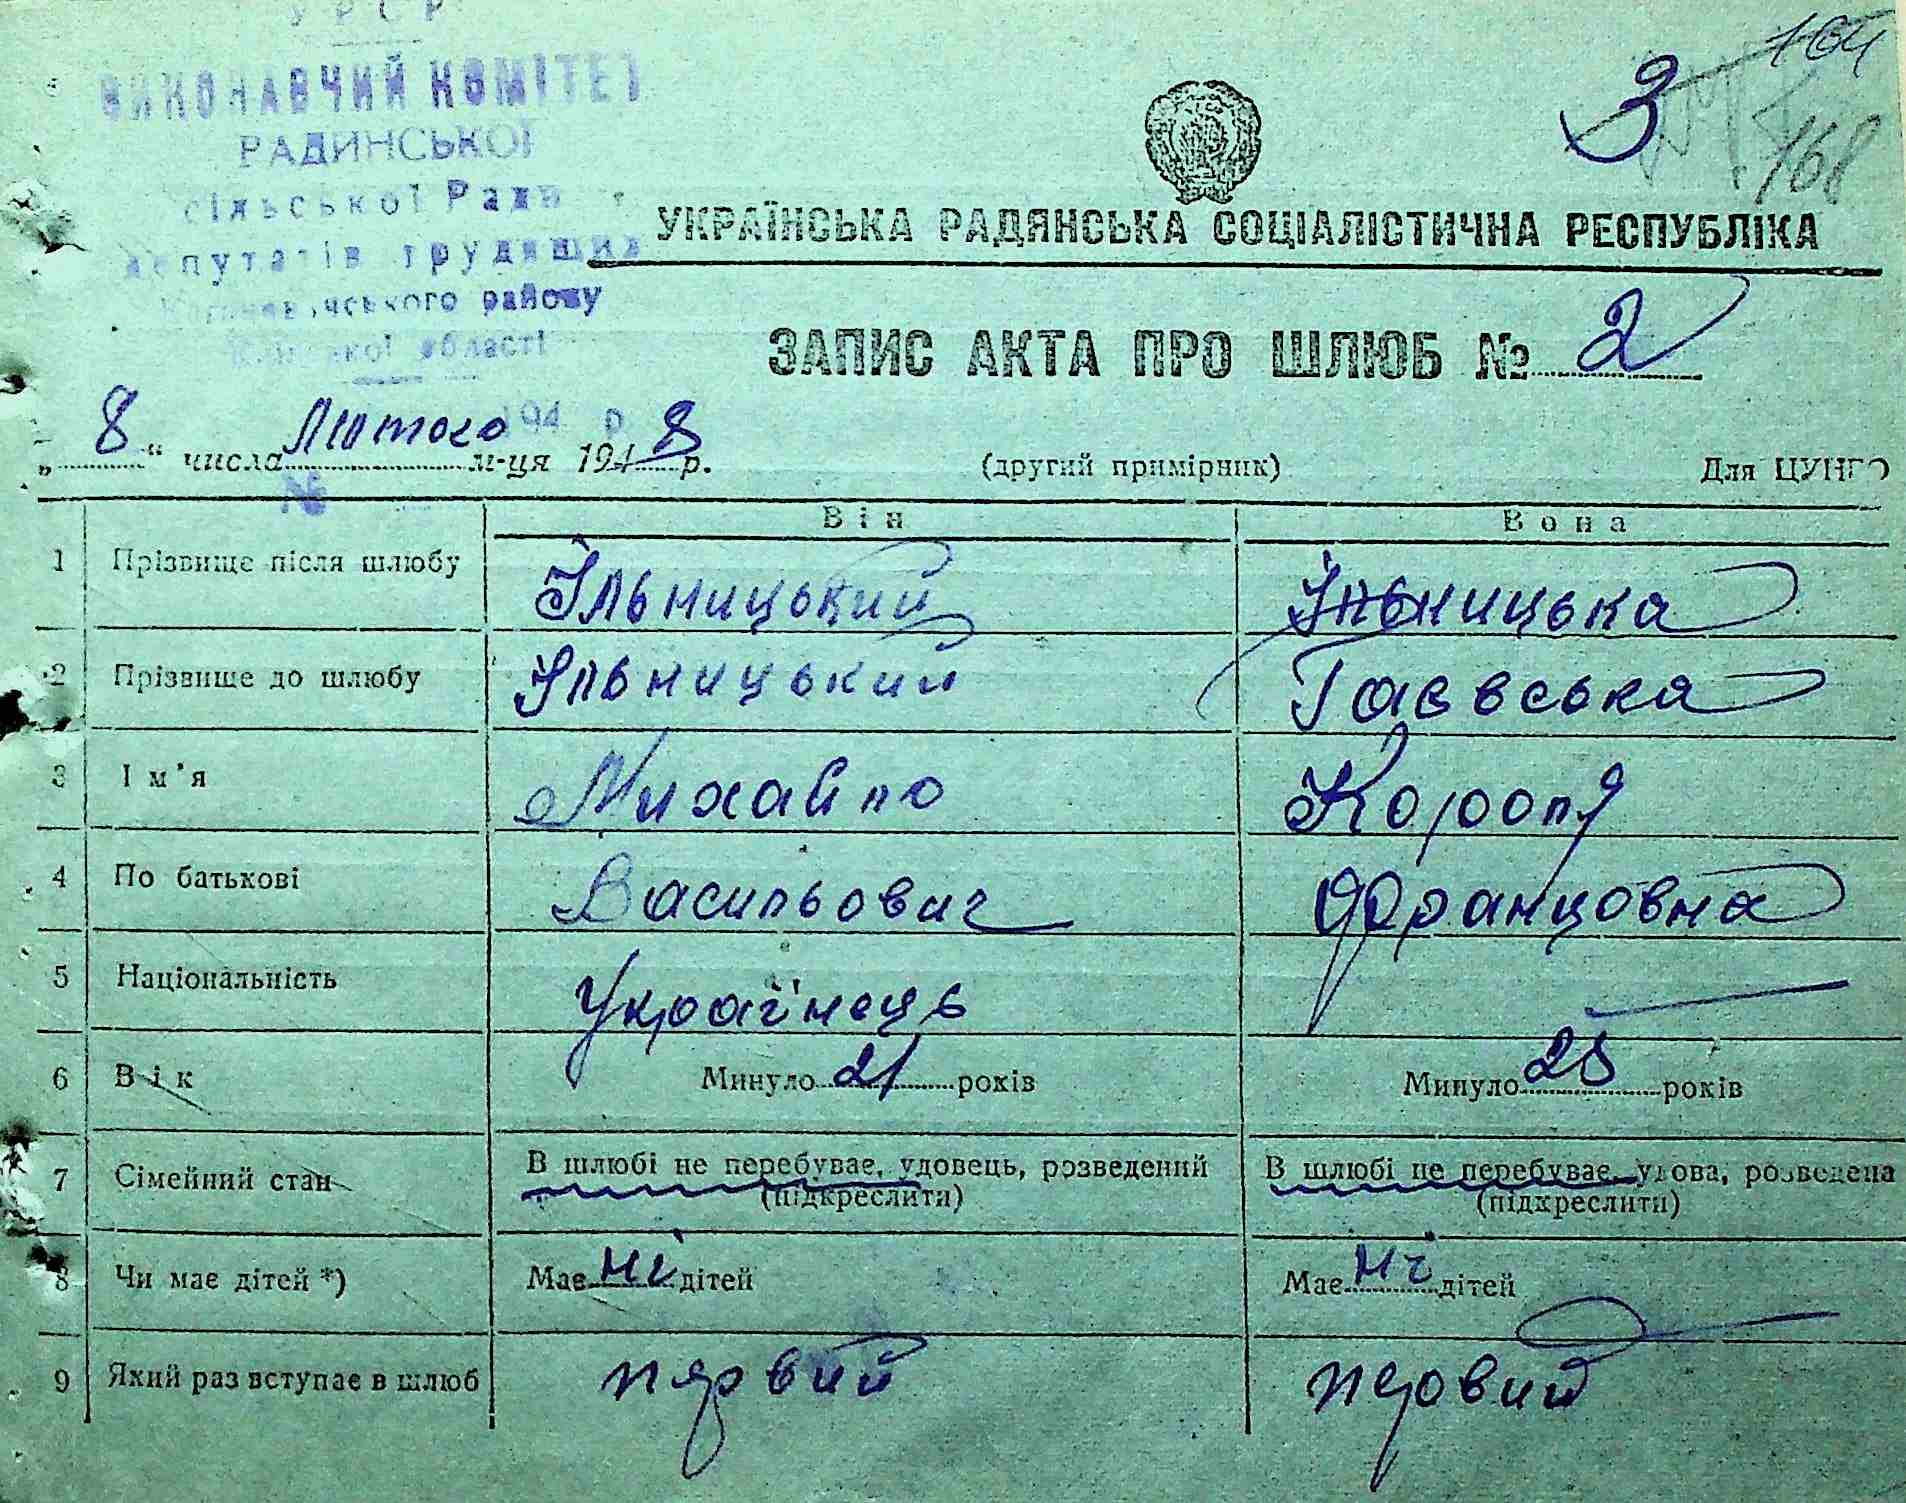 УРСР
ВИКОНАВЧИЙ КОМІТЕТ
РАДИНСЬКОЇ
сільської Ради
депутатів трудящих
району
області
194 р.
№
3
164
168
УКРАЇНСЬКА РАДЯНСЬКА СОЦІАЛІСТИЧНА РЕСПУБЛІКА
ЗАПИС АКТА ПРО ШЛЮБ № 2
„8“ числа Лютого м-ця 1948 р. (другий примірник) Для ЦУНГО
Він Вона
1 Прізвище після шлюбу Ільницький Ільницька
2 Прізвище до шлюбу Ільницький Гаєвська
3 Ім'я Михайло Кароля
4 По батькові Васильович Францовна
5 Національність Українець
6 Вік Минуло 21 років Минуло 25 років
7 Сімейний стан В шлюбі не перебуває, удовець, розведений В шлюбі не перебуває, удова, розведена
(підкреслити) (підкреслити)
8 Чи має дітей *) Має ні дітей Має ні дітей
9 Який раз вступає в шлюб первий первий